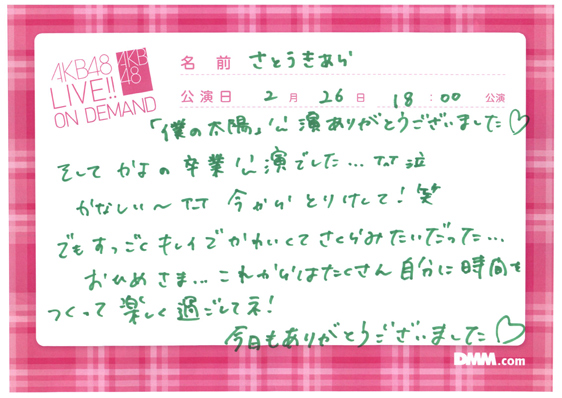 AKB48
LIVE!!
ON DEMAND
AKB
48
名前 さとうきあら
公演日 2月26日 18:00 公演
「僕の太陽」公演ありがとうございました♡
そして かよの卒業公演でした… T^T 泣
かなしい〜 T^T 今から とりけして! 笑
でもすっごくキレイでかわいくてさくらみたいだった…
おひめさま… これからはたくさん自分に時間を
つくって楽しく過ごしてネ!
今日もありがとうございました♡
DMM.com